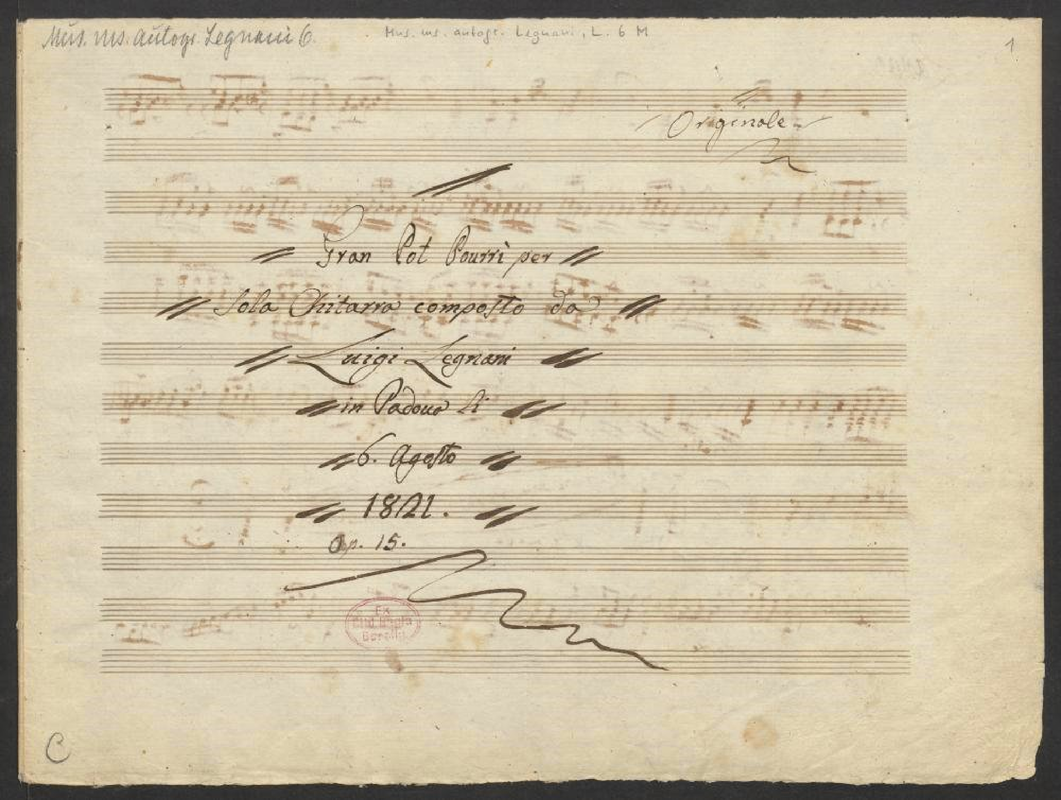 Mus. ms. autogr. Legnani 6.
Mus. ms. autogr. Legnani, L. 6 M
1
Originale
Gran Pot Pourrì per
Sola Chitarra composto da
Luigi Legnani
in Padova li
6. Agosto
1821.
Op. 15.
Ex
Regia
Berolin.
C